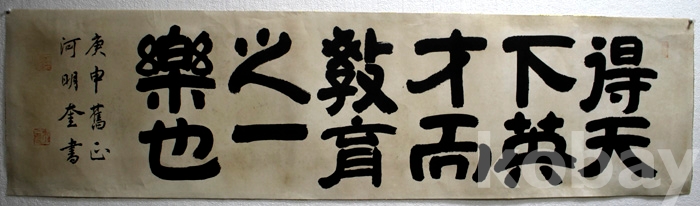 得天
下英
才而
敎育
之一
樂也
庚申舊正
河明奎書
kobay